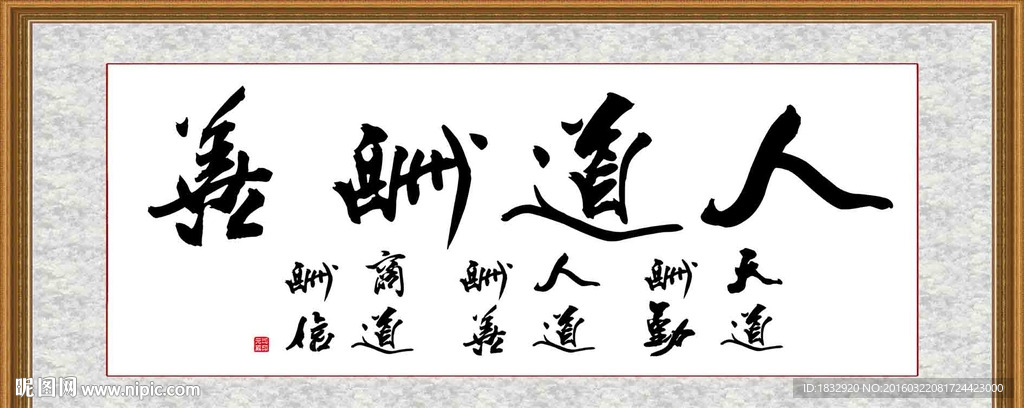 人道酬善
天道
酬勤
人道
酬善
商道
酬信
昵图网 www.nipic.com
ID:1832920 NO:20160322081724423000